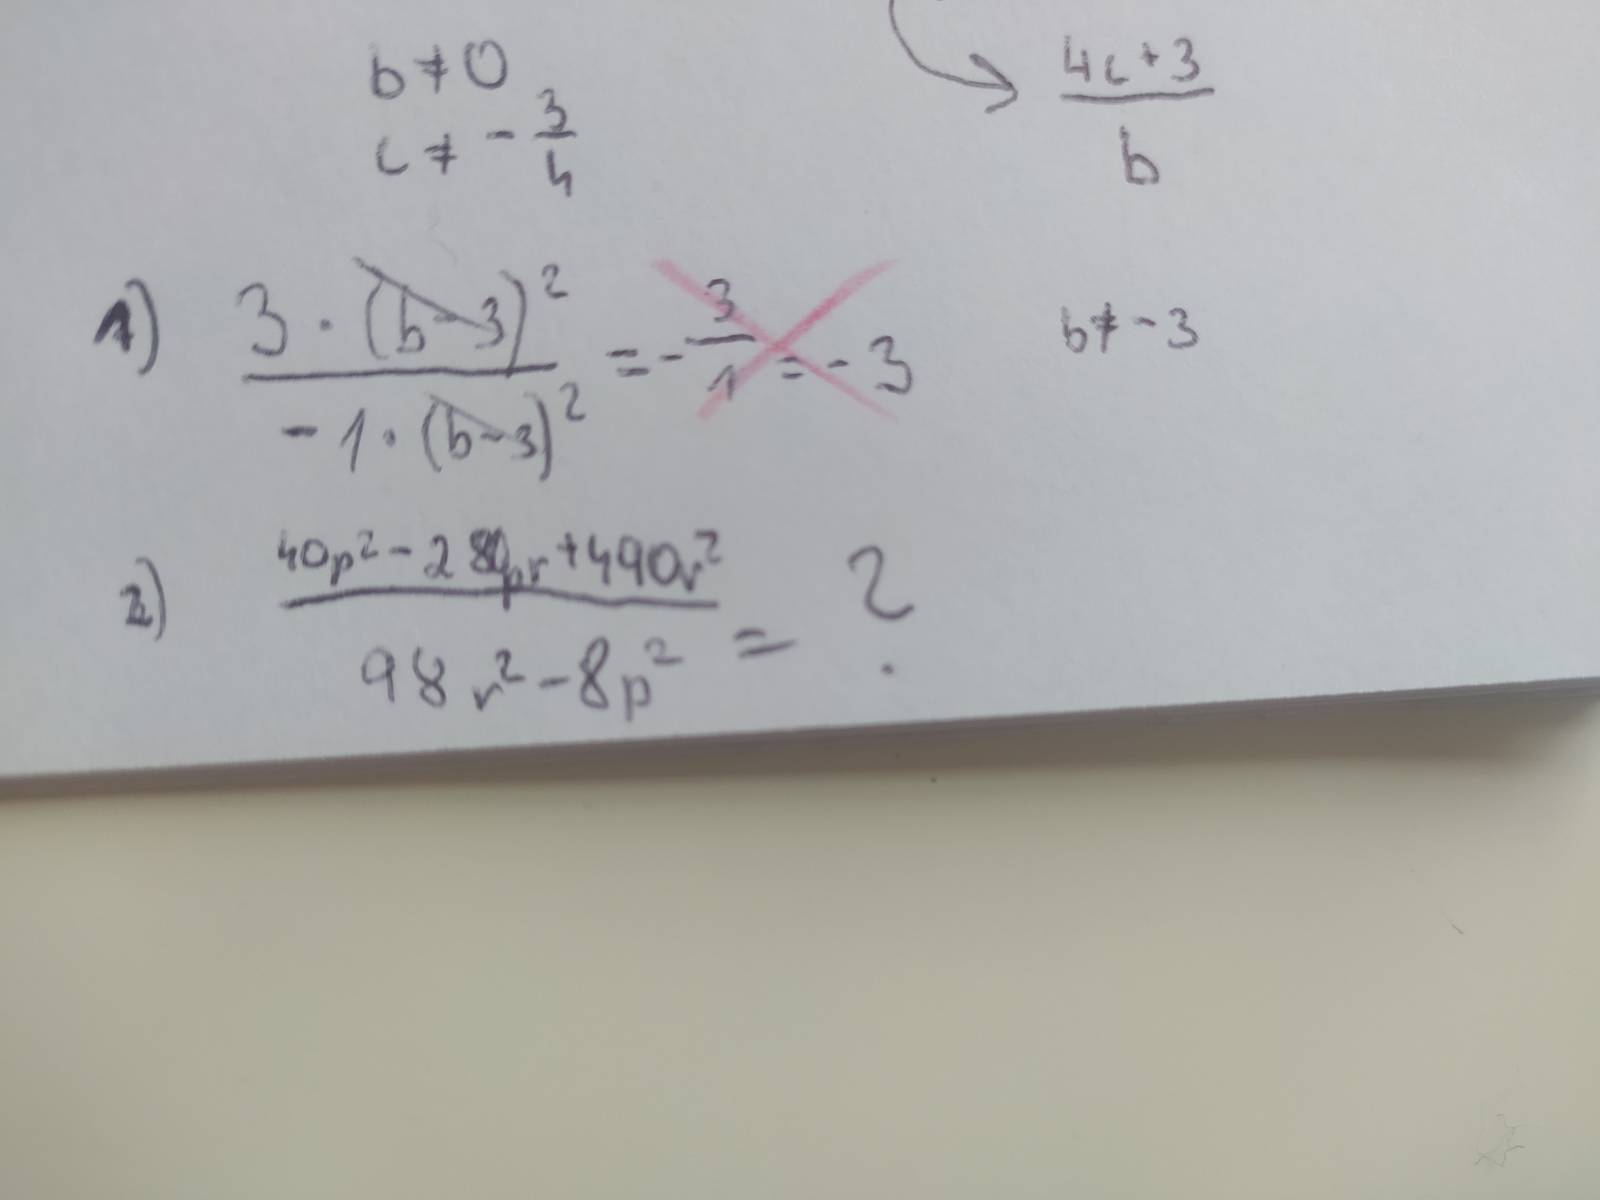 b ≠ 0
c ≠ - 3/4
4c+3
b
1) 3 · (b-3)² / -1 · (b-3)² = - 3/1 = - 3
b ≠ - 3
2) 40p² - 280pr + 490r² / 98r² - 8p² = ?